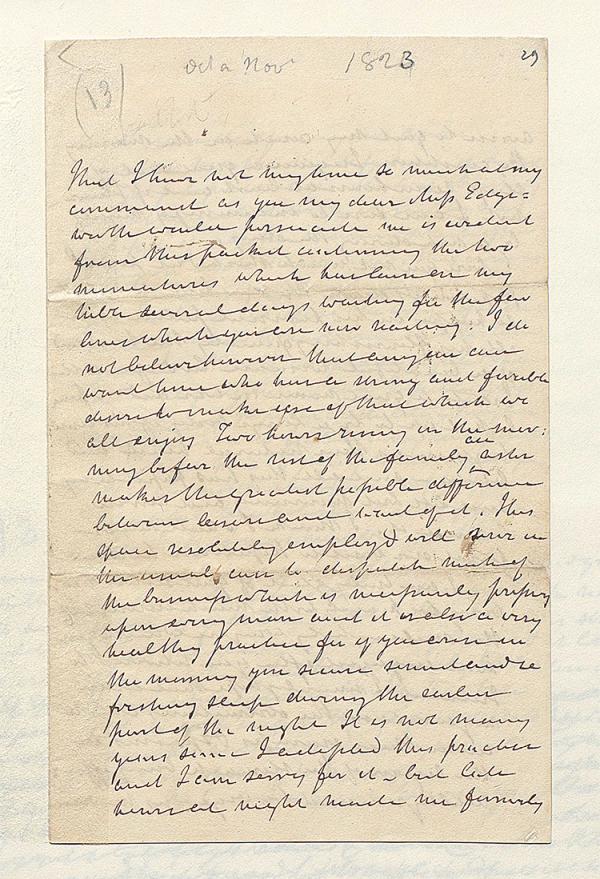 (13)
Oct or Novr 1823
29
That I have not my time so much at my
command as you my dear Miss Edge=
worth would persuade me is evident
from this packet containing the two
miniatures which has lain on my
table several days waiting for the few
lines which you are now reading. I do
not believe however that any one can
want time who has a strong and forcible
desire to make use of that which we
all enjoy Two hours rising in the mor:
ning before the rest of the family are astir
makes the greatest possible difference
between leisure and want of it. This
space resolutely employd will serve in
the usual case to dispatch much of
the business which is necessarily pressing
upon every man and it is also a very
healthy practice for if you arise in
the morning you secure sound and re
freshing sleep during the earlier
part of the night It is not many
years since I adopted this practice
and I am sorry for it – but late
hours at night made me formerly